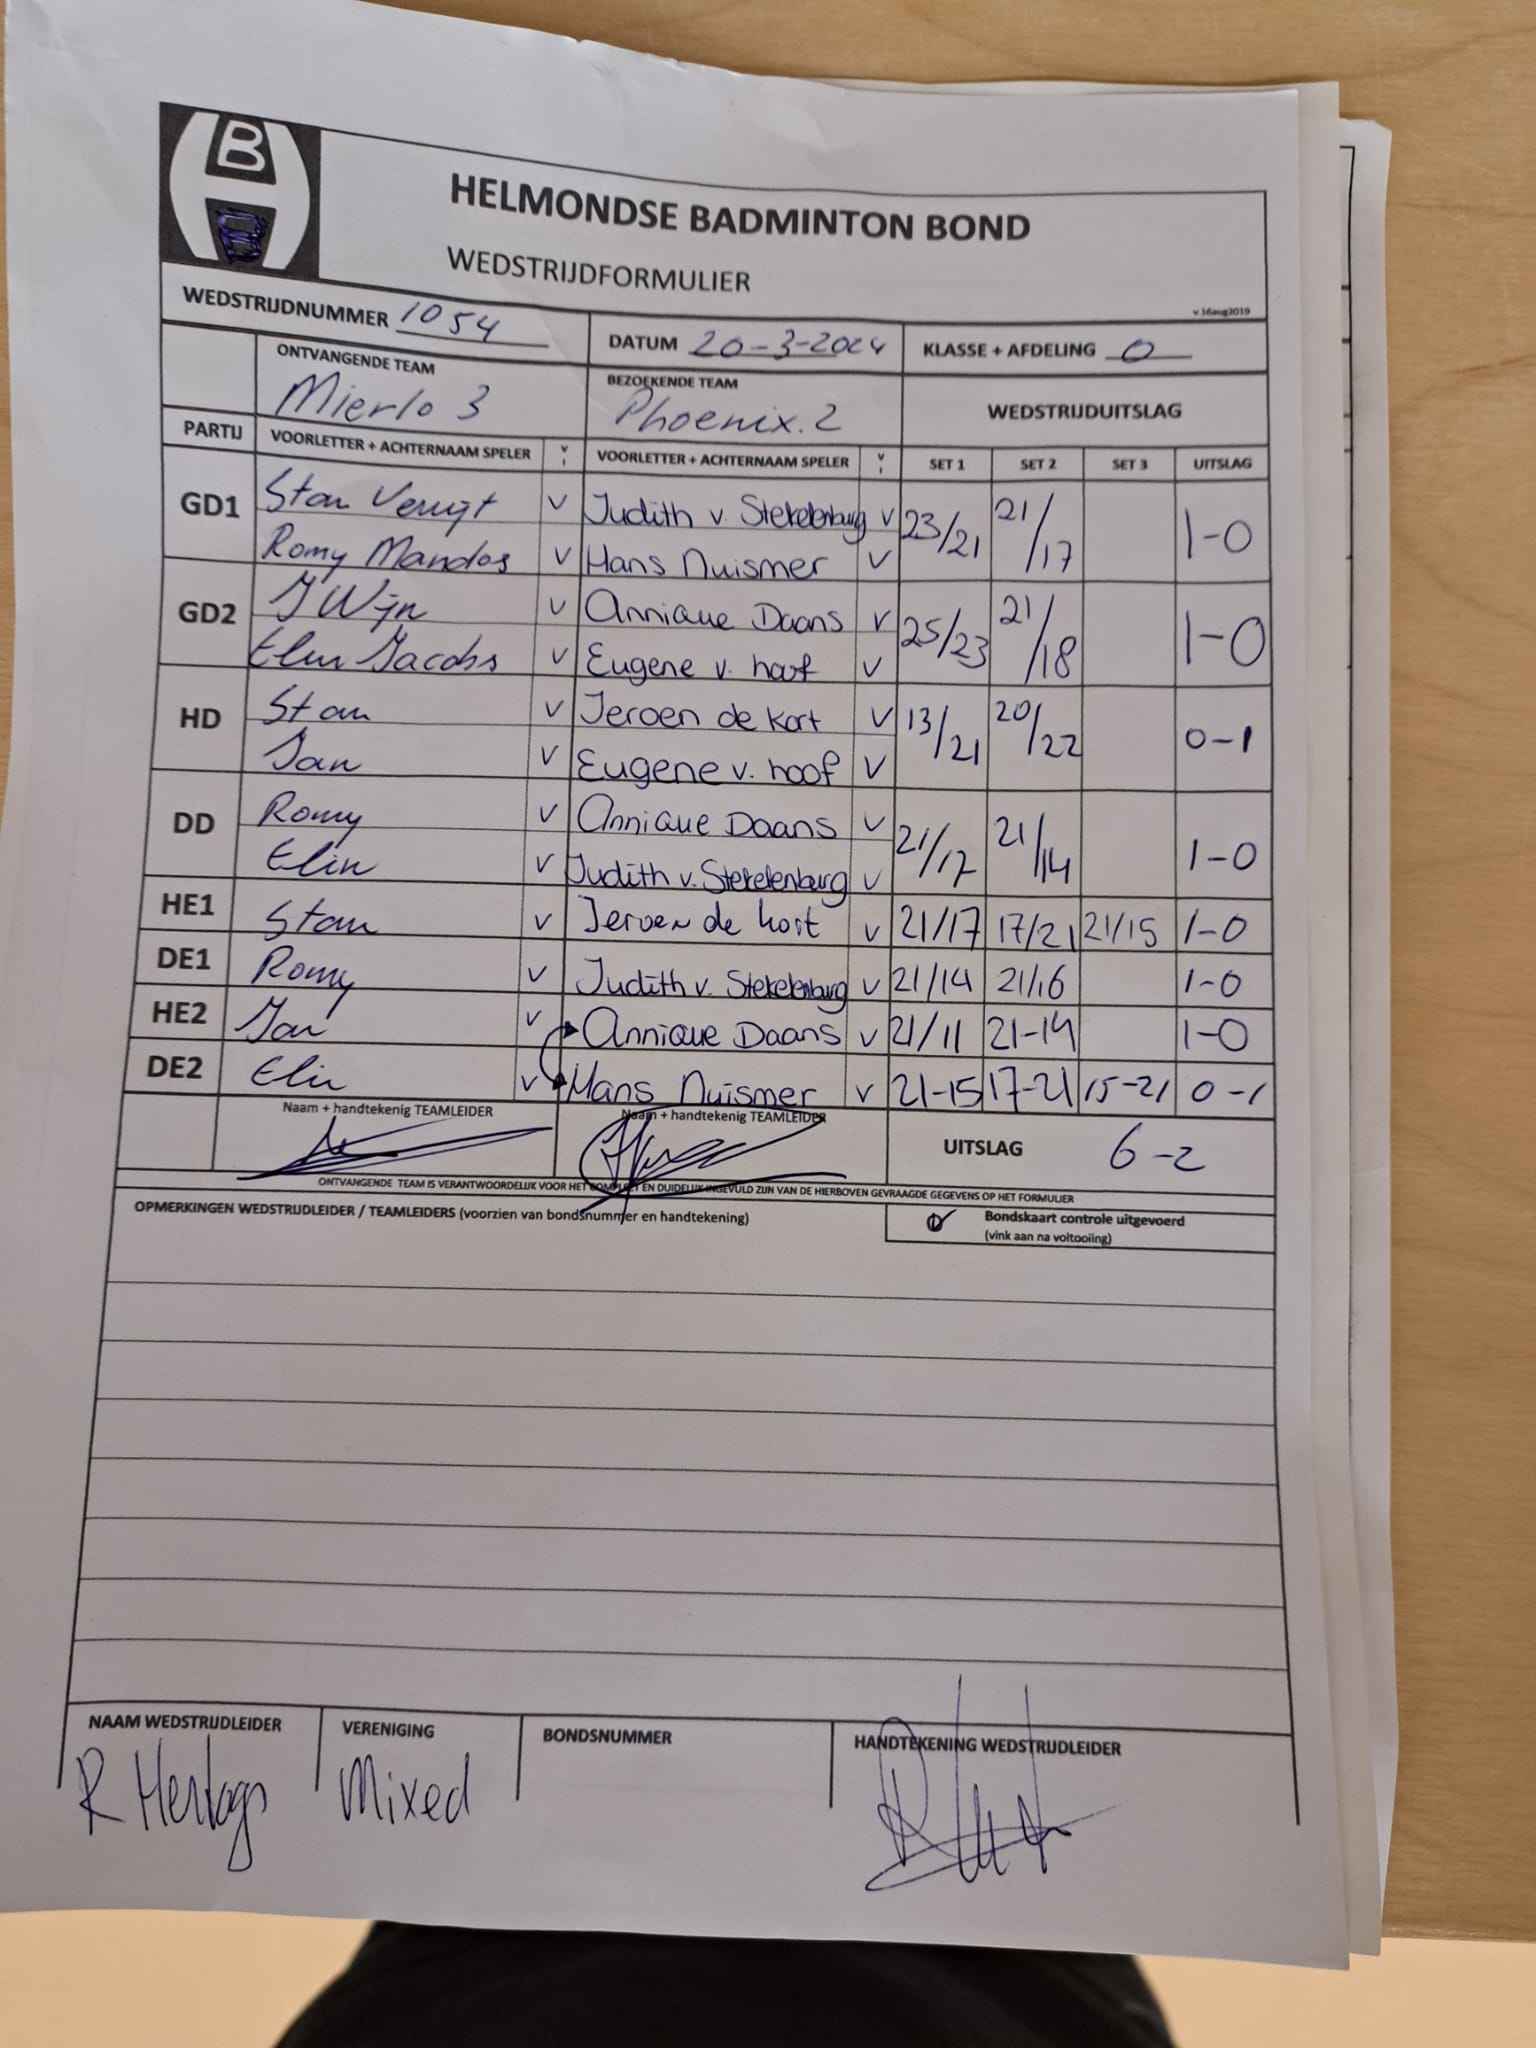 HELMONDSE BADMINTON BOND
WEDSTRIJDFORMULIER
v.16aug2019
WEDSTRIJDNUMMER 1054 DATUM 20-3-2024 KLASSE + AFDELING 0
ONTVANGENDE TEAM BEZOEKENDE TEAM WEDSTRIJDUITSLAG
Mierlo 3 Phoenix.2
PARTIJ VOORLETTER + ACHTERNAAM SPELER V I VOORLETTER + ACHTERNAAM SPELER V I SET 1 SET 2 SET 3 UITSLAG
GD1 Stan V Judith v Stekelenburg v 23/21 21/17 1-0
Romy Mandos V Hans Nuismer v
GD2 J Wijn V Annique Daans v 25/23 21/18 1-0
Elin Jacobs V Eugene v. hoof v
HD Stan V Jeroen de Kort V 13/21 20/22 0-1
Jan V Eugene v. hoof V
DD Romy V Annique Daans v 21/17 21/14 1-0
Elin V Judith v. Stekelenburg v
HE1 Stan V Jeroen de Kort v 21/17 17/21 21/15 1-0
DE1 Romy V Judith v. Stekelenburg v 21/14 21/16 1-0
HE2 Jan V Annique Daans v 21/11 21-14 1-0
DE2 Elin V Hans Nuismer v 21-15 17-21 15-21 0-1
Naam + handtekenig TEAMLEIDER Naam + handtekenig TEAMLEIDER
UITSLAG 6-2
ONTVANGENDE TEAM IS VERANTWOORDELIJK VOOR HET COMPLEET EN DUIDELIJK INGEVULD ZIJN VAN DE HIERBOVEN GEVRAAGDE GEGEVENS OP HET FORMULIER
OPMERKINGEN WEDSTRIJDLEIDER / TEAMLEIDERS (voorzien van bondsnummer en handtekening) Bondskaart controle uitgevoerd
(vink aan na voltooiing)
NAAM WEDSTRIJDLEIDER VERENIGING BONDSNUMMER HANDTEKENING WEDSTRIJDLEIDER
R Hertogs Mixed